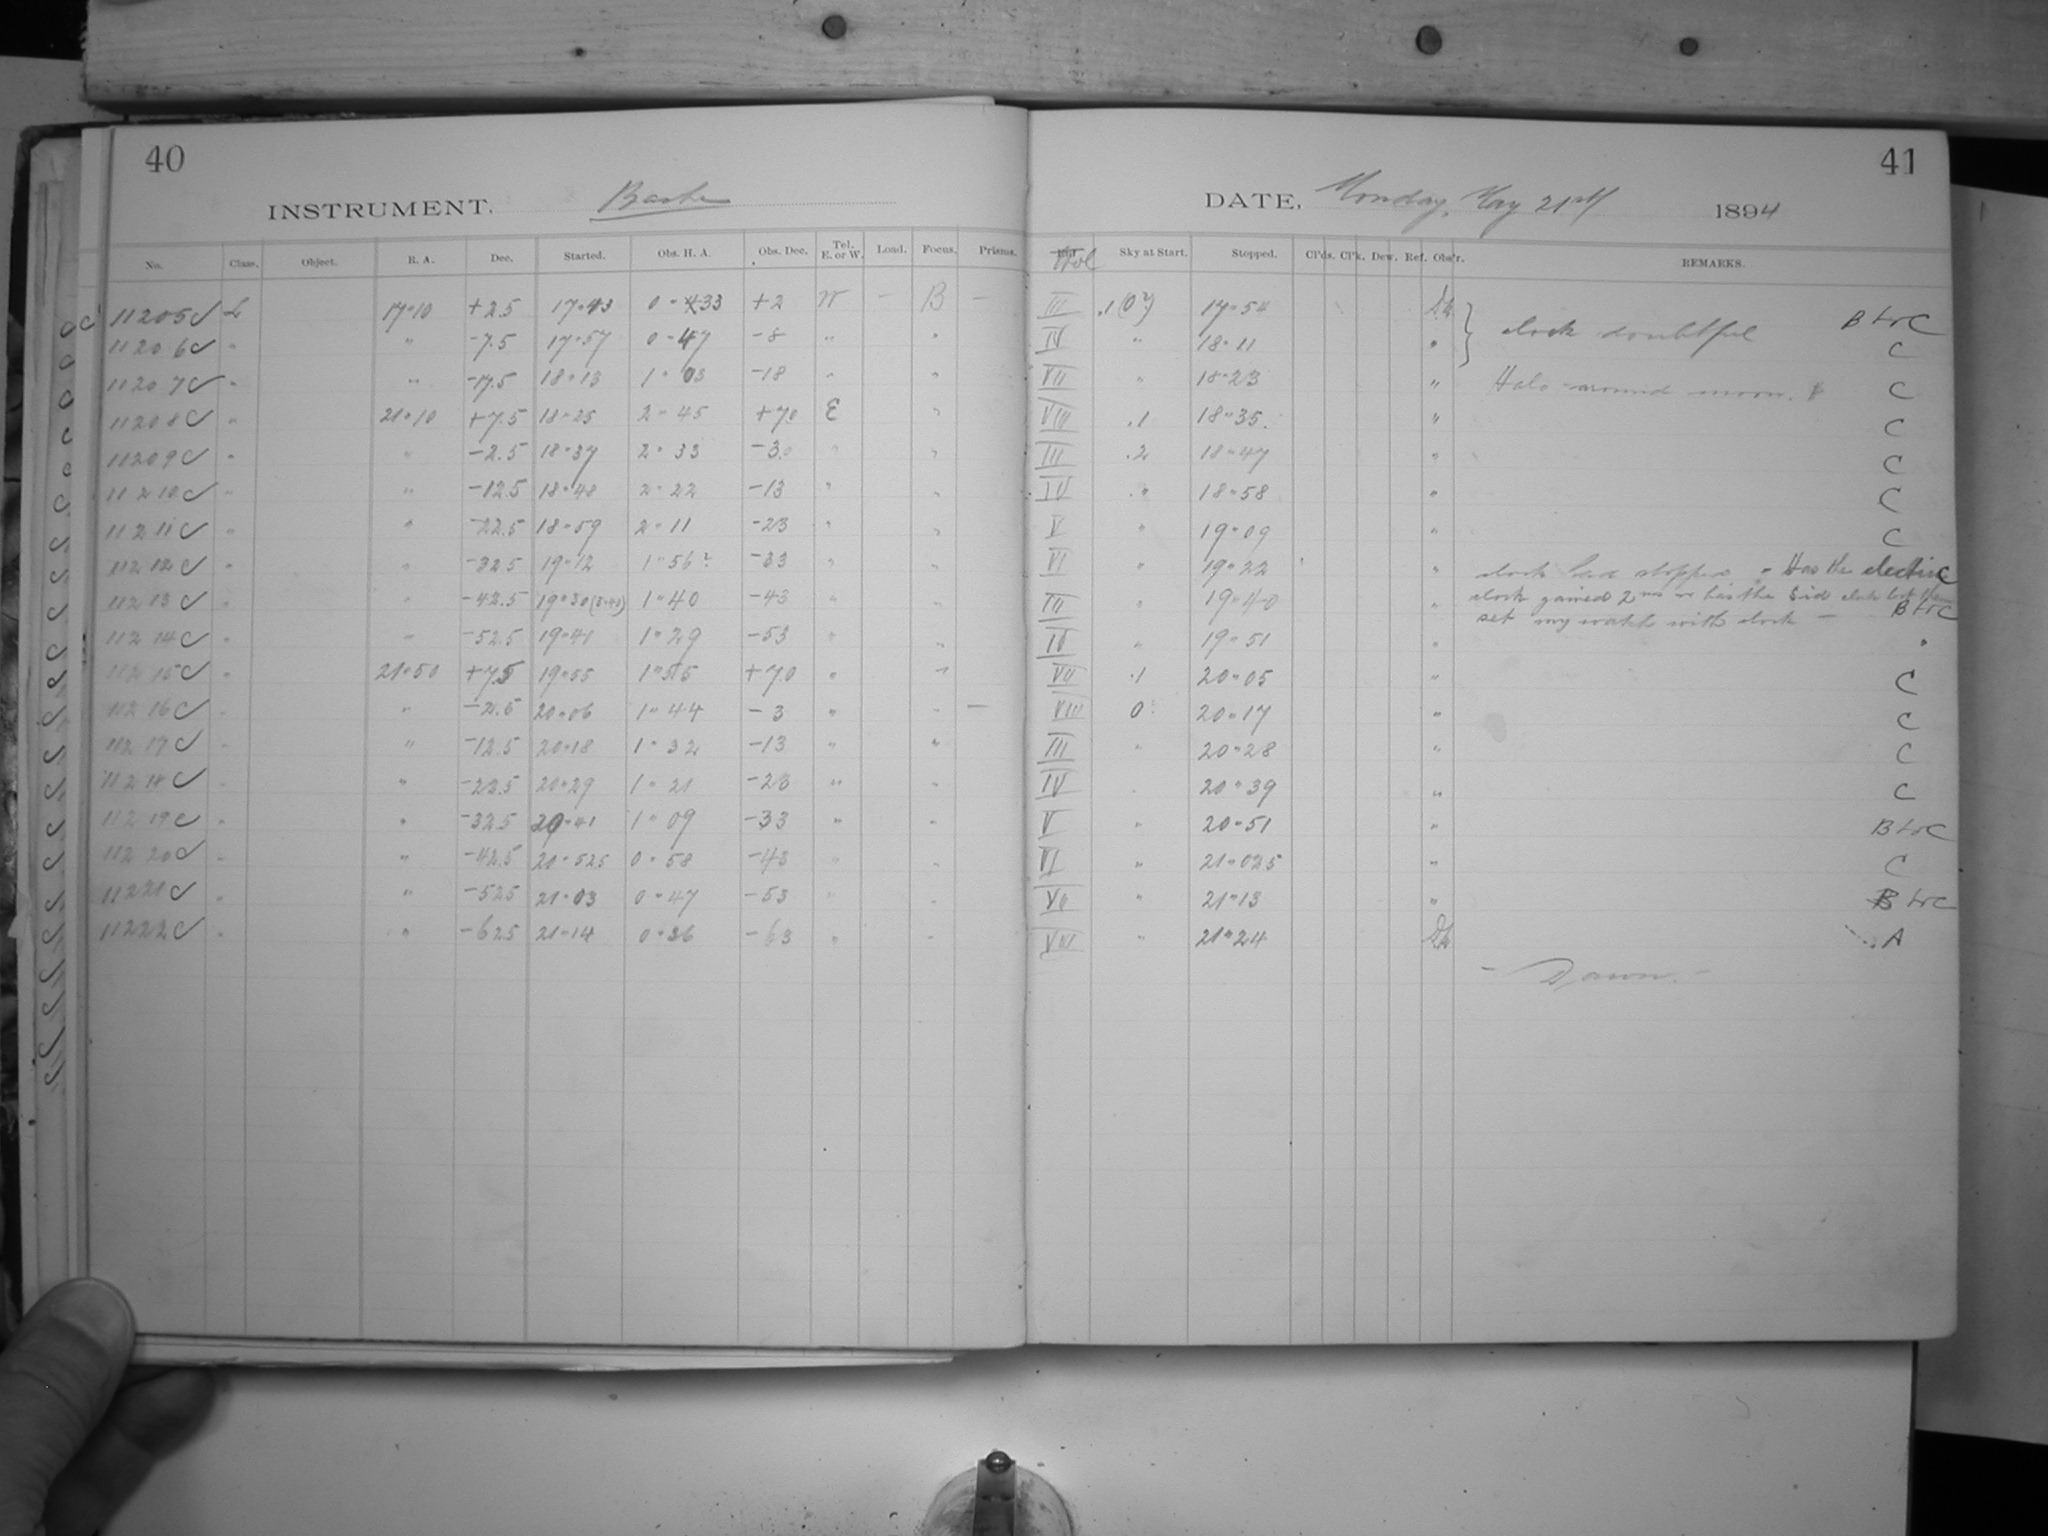 40
INSTRUMENT. Bache
No. Class. Object. R. A. Dec. Started. Obs. H. A. Obs. Dec. Tel. E. or W. Load. Focus. Prisms.
11205 L 17-10 +2.5 17-43 0-33 +2 W - B -
11206 " " -7.5 17-57 0-47 -8 " "
11207 " " -17.5 18-13 1-03 -18 " "
11208 " 21-10 +7.5 18-25 2-45 +70 E "
11209 " " -2.5 18-37 2-33 -3 " "
11210 " " -12.5 18-48 2-22 -13 " "
11211 " " -22.5 18-59 2-11 -23 " "
11212 " " -32.5 19-12 1-56? -33 " "
11213 " " -42.5 19-30 1-40 -43 " "
11214 " " -52.5 19-41 1-29 -53 " "
11215 " 21-50 +7.5 19-55 1-55 +70 " "
11216 " " -2.5 20-06 1-44 -3 " " -
11217 " " -12.5 20-18 1-32 -13 " "
11218 " " -22.5 20-29 1-21 -23 " "
11219 " " -32.5 20-41 1-09 -33 " "
11220 " " -42.5 0-58 -43 " "
11221 " " -52.5 21-03 0-47 -53 " "
11222 " " -62.5 21-14 0-36 -63 " "
41
DATE, Monday, May 21st 1894
Hol Sky at Start. Stopped. Cl'ds. Cl'k. Dew. Ref. Obs'r. REMARKS.
III .1(0?) 17-54 clock doubtful B + r C
IV " 18-11 " C
VII " 18-23 " Halo around moon. C
VIII .1 18-35. " C
III .2 18-47 " C
IV " 18-58 " C
V " 19-09 " C
VI " 19-22 " clock had stopped - Has the electric C
III " 19-40 " clock gained 2ms or has the Sid clock lost them B + r C
IV " 19-51 " set my watch with clock - "
VII .1 20-05 " C
VIII 0 20-17 " C
III " 20-28 " C
IV 20-39 " C
V " 20-51 " B + r C
VI " 21-02.5 " C
VII " 21-13 " B + r C
VIII " 21-24 A
- Dawn. -